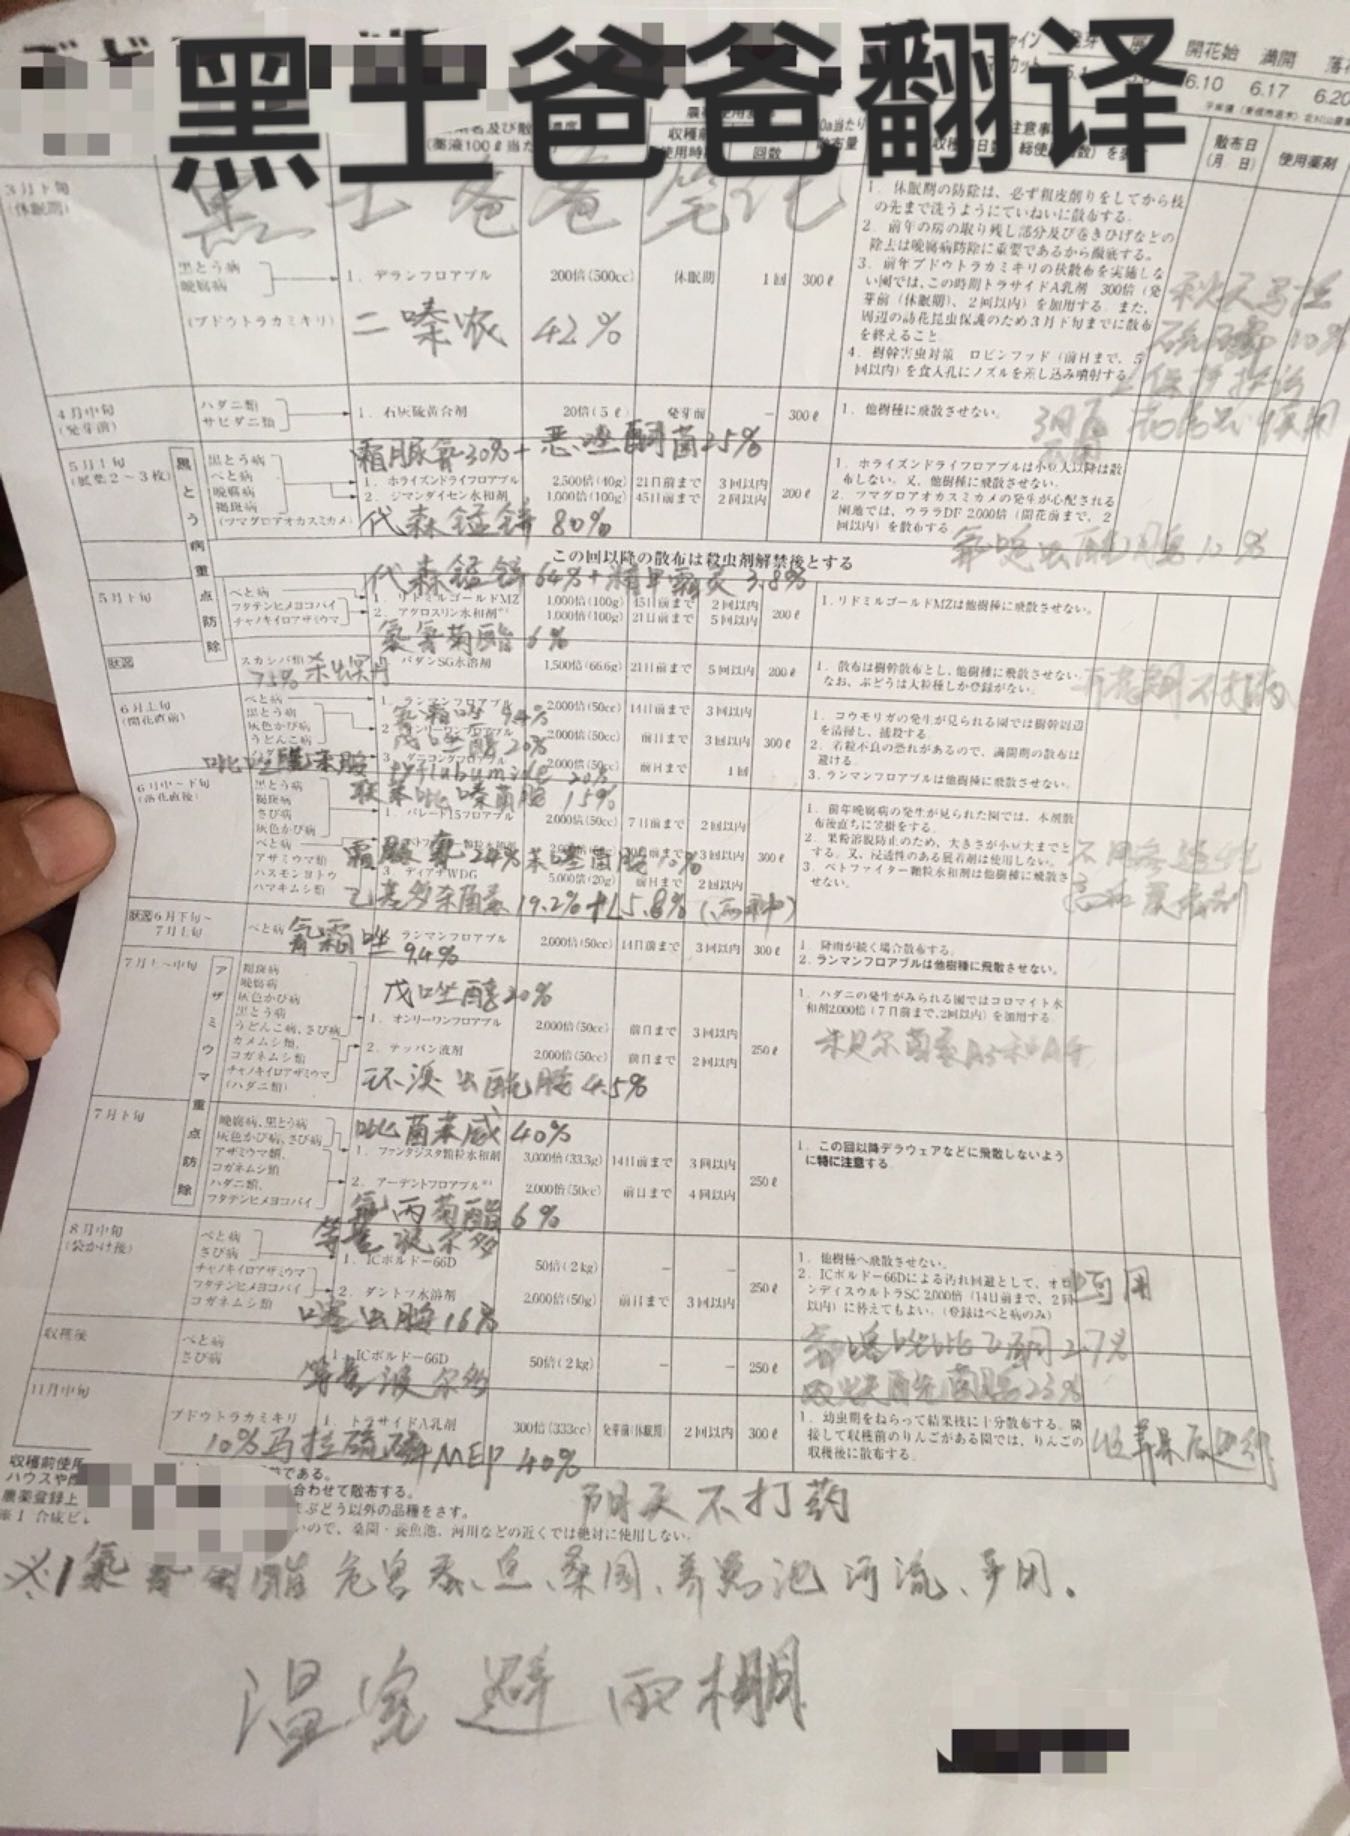 黑土爸爸翻译
開花始 満開
6.10 6.17 6.20
収穫前
使用時
回数
散布日
(月 日)
使用薬剤
3月下旬
(休眠期)
黒とう病
晩腐病
(ブドウトラカミキリ)
1. デランフロアブル 200倍(500cc) 休眠期 1回 300ℓ
二嗪农 42%
1. 休眠期の防除は、必ず粗皮削りをしてから枝の先まで洗うようにていねいに散布する。
2. 前年の房の取り残し部分及び巻きひげなどの除去は晩腐病防除に重要であるから徹底する。
3. 前年ブドウトラカミキリの秋散布を実施しない園では、この時期トラサイドA乳剤 300倍(発芽前(休眠期)、2回以内)を加用する。また、周辺の訪花昆虫保護のため3月下旬までに散布を終えること。
4. 樹幹害虫対策 ロビンフッド(前日まで、5回以内)を食入孔にノズルを差し込み噴射する。
4月中旬
(発芽前)
ハダニ類
サビダニ類
1. 石灰硫黄合剤 20倍(5ℓ) 発芽前 － 300ℓ
1. 他樹種に飛散させない。
霜脲氰30%+恶唑酮菌25%
5月上旬
(展葉2～3枚)
黒とう病重点防除
黒とう病
べと病
晩腐病
褐斑病
(ツマグロアオカスミカメ)
1. ホライズンドライフロアブル 2,500倍(40g) 21日前まで 3回以内
2. ジマンダイセン水和剤 1,000倍(100g) 45日前まで 2回以内 200ℓ
代森锰锌 80%
1. ホライズンドライフロアブルは小豆大以降は散布しない。又、他樹種に飛散させない。
2. ツマグロアオカスミカメの発生が心配される園地では、ウララDF 2,000倍(開花前まで、2回以内)を散布する
この回以降の散布は殺虫剤解禁後とする
代森锰锌64%+精甲霜灵 3.8%
5月下旬
べと病
フタテンヒメヨコバイ
チャノキイロアザミウマ
1. リドミルゴールドMZ 1,000倍(100g) 45日前まで 2回以内
2. アグロスリン水和剤 1,000倍(100g) 21日前まで 5回以内 200ℓ
1. リドミルゴールドMZは他樹種に飛散させない。
氯氰菊酯 6%
状況
スカシバ類
パダンSG水溶剤 1,500倍(66.6g) 21日前まで 5回以内 200ℓ
75% 杀螟丹
1. 散布は樹幹散布とし、他樹種に飛散させない。なお、ぶどうは大粒種しか登録がない。
开花期不打药
6月上旬
(開花直前)
べと病
黒とう病
灰色かび病
うどんこ病
1. ランマンフロアブル 2,000倍(50cc) 14日前まで 3回以内
氰霜唑 9.4%
2,000倍(50cc) 前日まで 3回以内 300ℓ
戊唑醇20%
3. ダニコングフロアブル 2,000倍(50cc) 前日まで 1回
pyflubumide 20%
1. コウモリガの発生が見られる園では樹幹周辺を清掃し、捕殺する。
2. 若粒不良の恐れがあるので、満開期の散布は避ける。
3. ランマンフロアブルは他樹種に飛散させない。
6月中～下旬
(落花直後)
黒とう病
褐斑病
さび病
灰色かび病
べと病
アザミウマ類
ハスモンヨトウ
ハマキムシ類
1. パレード15フロアブル 2,000倍(50cc) 7日前まで 2回以内
霜脲氰24%苯噻菌胺10%
3回以内 300ℓ
3. ディアナWDG 5,000倍(20g) 前日まで 2回以内
乙基多杀菌素 19.2%+L5.8%
1. 前年晩腐病の発生が見られた園では、本剤散布後直ちに笠掛をする。
2. 果粉溶脱防止のため、大きさが小豆大までとする。又、浸透性のある展着剤は使用しない。
3. ベトファイター顆粒水和剤は他樹種に飛散させない。
状況6月下旬～
7月上旬
べと病
ランマンフロアブル 2,000倍(50cc) 14日前まで 3回以内 300ℓ
氰霜唑 9.4%
1. 降雨が続く場合散布する。
2. ランマンフロアブルは他樹種に飛散させない。
7月上～中旬
アザミウマ重点防除
褐斑病
晩腐病
灰色かび病
黒とう病
うどんこ病、さび病
カメムシ類、
コガネムシ類
チャノキイロアザミウマ
(ハダニ類)
戊唑醇20%
1. オンリーワンフロアブル 2,000倍(50cc) 前日まで 3回以内
2. テッパン液剤 2,000倍(50cc) 前日まで 2回以内 250ℓ
环溴虫酰胺 4.5%
1. ハダニの発生がみられる園ではコロマイト水和剤2,000倍(7日前まで、2回以内)を加用する。
7月下旬
晩腐病、黒とう病
灰色かび病、さび病
アザミウマ類、
コガネムシ類
ハダニ類、
フタテンヒメヨコバイ
吡菌苯威 40%
1. ファンタジスタ顆粒水和剤 3,000倍(33.3g) 14日前まで 3回以内
2. アーデントフロアブル 2,000倍(50cc) 前日まで 4回以内 250ℓ
氟丙菊酯 6%
1. この回以降デラウェアなどに飛散しないように特に注意する。
8月中旬
(袋かけ後)
べと病
さび病
チャノキイロアザミウマ
フタテンヒメヨコバイ
コガネムシ類
等量波尔多
1. ICボルドー66D 50倍(2kg) － －
2. ダントツ水溶剤 2,000倍(50g) 前日まで 3回以内 250ℓ
噻虫胺 16%
1. 他樹種へ飛散させない。
2. ICボルドー66Dによる汚れ回避として、オロンディスウルトラSC 2,000倍(14日前まで、2回以内)に替えてもよい。(登録はべと病のみ)
収穫後
べと病
さび病
1. ICボルドー66D 50倍(2kg) － － 250ℓ
等量波尔多
11月中旬
ブドウトラカミキリ
1. トラサイドA乳剤 300倍(333cc) 発芽前(休眠期) 2回以内 300ℓ
10%马拉硫磷+MEP 40%
1. 幼虫期をねらって結果枝に十分散布する。隣接して収穫前のりんごがある園では、りんごの収穫後に散布する。
収穫前使用
ハウスや雨
農薬登録上
である。
合わせて散布する。
ぶどう以外の品種をさす。
※1 合成ピ
いので、桑園・養魚池、河川などの近くでは絶対に使用しない。
阴天不打药
※1 氯氰菊酯 危害蚕、鱼、桑园、养鱼池 河流、多用。
温室避雨棚